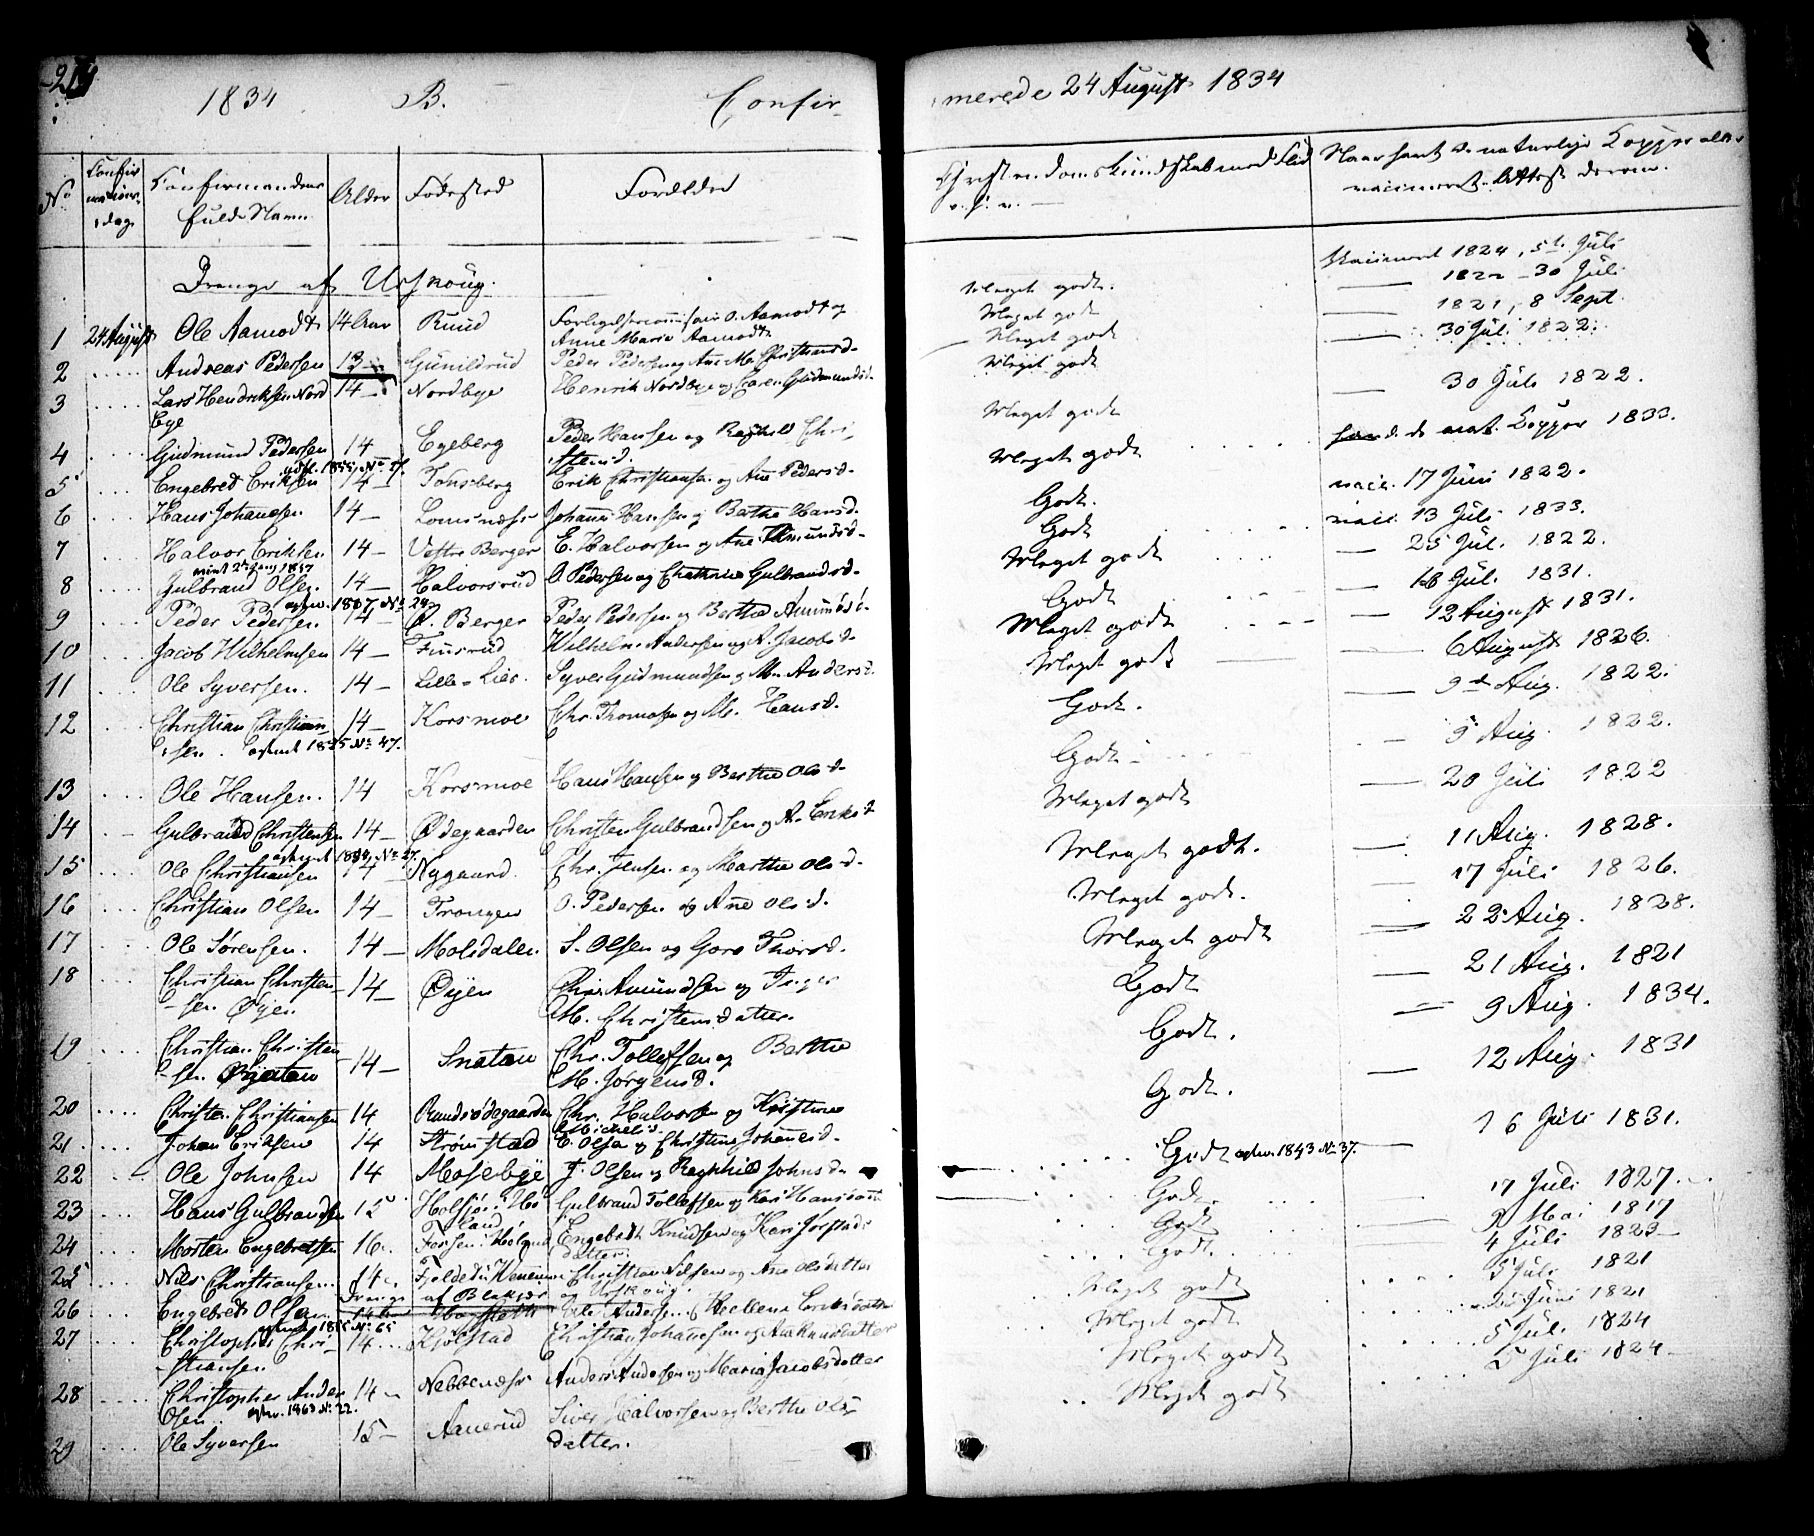 1834 B. Confir-
merede 24 August 1834
No
Confirmations dag
Confirmandens fulde Navn
Alder
Fødested
Forældre
Drenge af Urskoug.
1 24 August Ole Aamodt 14 Aar Ruud Forligelsescommissair O. Aamodt og Anne Maria Aamodt
2 Andreas Pedersen 13 Gunildrud Peder Pedersen og Ane M. Christensd.
3 Lars Hendriksen Nordbye 14 Nordbye Henrik Nordbye og Karen Gudmundsd.
4 Gudmund Pedersen 14 Egeberg Peder Hansen og Raghild Christensd.
5 Engebret Eriksen 14 Tonsberg Erik Christiansen og Ane Pedersd.
6 Hans Johansen 14 Lomsnæss Johannes Hansen og Bertha Hansd.
7 Halvor Eriksen 14 Vestre Berger E. Halvorsen og Ane Amundsd.
8 Gulbrand Olsen 14 Halvorsrud O. Pedersen og Cathrine Gulbrandsd.
9 Peder Pedersen 14 Berger Peder Pedersen og Berthe Amundsd.
10 Jacob Wilhelmsen 14 Finsrud Wilhelm Andersen og A. Jacobsd.
11 Ole Syversen. 14 Lille-Lier. Syver Gudmundsen og M. Andersd.
12 Christian Christiansen 14 Korsmoe Chr. Thomasen og M. Hansd.
13 Ole Hansen. 14 Korsmoe Hans Hansen og Berthe Olsd.
14 Gulbrand Christensen 14 Ødegaarden Christen Gulbrandsen og A. Eriksd.
15 Ole Christiansen 14 Nygaard Chr. Jensen og Marthe Olsd.
16 Christian Olsen 14 Trongen O. Pedersen og Ane Olsd.
17 Ole Sørensen. 14 Molsdalen S. Olsen og Goro Thorsd.
18 Christian Christensen Øyen 14 Øyen Chr. Amundsen og Inger M. Christensdatter.
19 Christian Christensen 14 Snatan Chr. Tollefsen og Berthe M. Jørgensd.
20 Christen Christiansen 14 Ruudsødegaarden Chr. Halvorsen og Kristine Michelsd.
21 Johan Eriksen 14 Strømstad E. Olsen og Christine Johannesd.
22 Ole Johnsen 14 Mosebye J. Olsen og Raghild Johnsd.
23 Hans Gulbrandsen 15 Holsjø i Høland Gulbrand Tollefsen og Kari Hansdatter
24 Morten Engebretsen 16 Fossen i Høland Engebret Knudsen og Kari Jorstadsdatter.
25 Nils Christiansen 14 Christian Nilsen og Ane Olsdatter
Drenge af Blakjær og Urskoug.
26 Engebret Olsen Ole Andersen Hellena Eriksdatter
27 Christopher Christiansen 14 Kjølstad Christian Johannesen og Ane Knudsdatter
28 Christopher Andersen 14 Nebbenæss Anders Andersen og Maria Jacobsdatter
29 Ole Syversen 15 Aanerud Siver Halvorsen og Berthe Olsdatter.
Christendomskundskab med Flid
Naar havt de naturlige Kopper eller vaccineret. Attest derom.
Meget godt. Vaccineret 1824, 5te Juli
Meget godt 1822 - 30 Juli
Meget godt 1821, 8 Sept.
Meget godt 30 Juli 1822.
Meget godt 30 Juli 1822.
Meget godt havd. de nat. Kopper 1833.
Godt. vacc. 17 Juni 1822.
Godt vacc. 13 Juli 1833.
Meget godt 25 Jul. 1822.
Godt 16 Jul. 1831.
Meget godt 12 August 1831.
Meget godt 6 August 1826.
Godt. 9de Aug. 1822.
Godt 5 Aug. 1822.
Meget godt 20 Juli 1822
Meget godt. 11 Aug. 1828.
Meget godt. 17 Juli 1826.
Meget godt 22 Aug. 1828.
Godt 21 Aug. 1821
Godt. 9 Aug. 1834.
Godt. 12 Aug. 1831
Godt 1843 No 37. 16 Juli 1831.
Godt. 17 Juli 1827.
Godt 2 Mai 1817
Godt. 4 Juli 1823
Meget godt 5 Juli 1821
Meget godt Juni 1821
Meget godt 5 Jul. 1824
Meget godt 5 Juli 1824